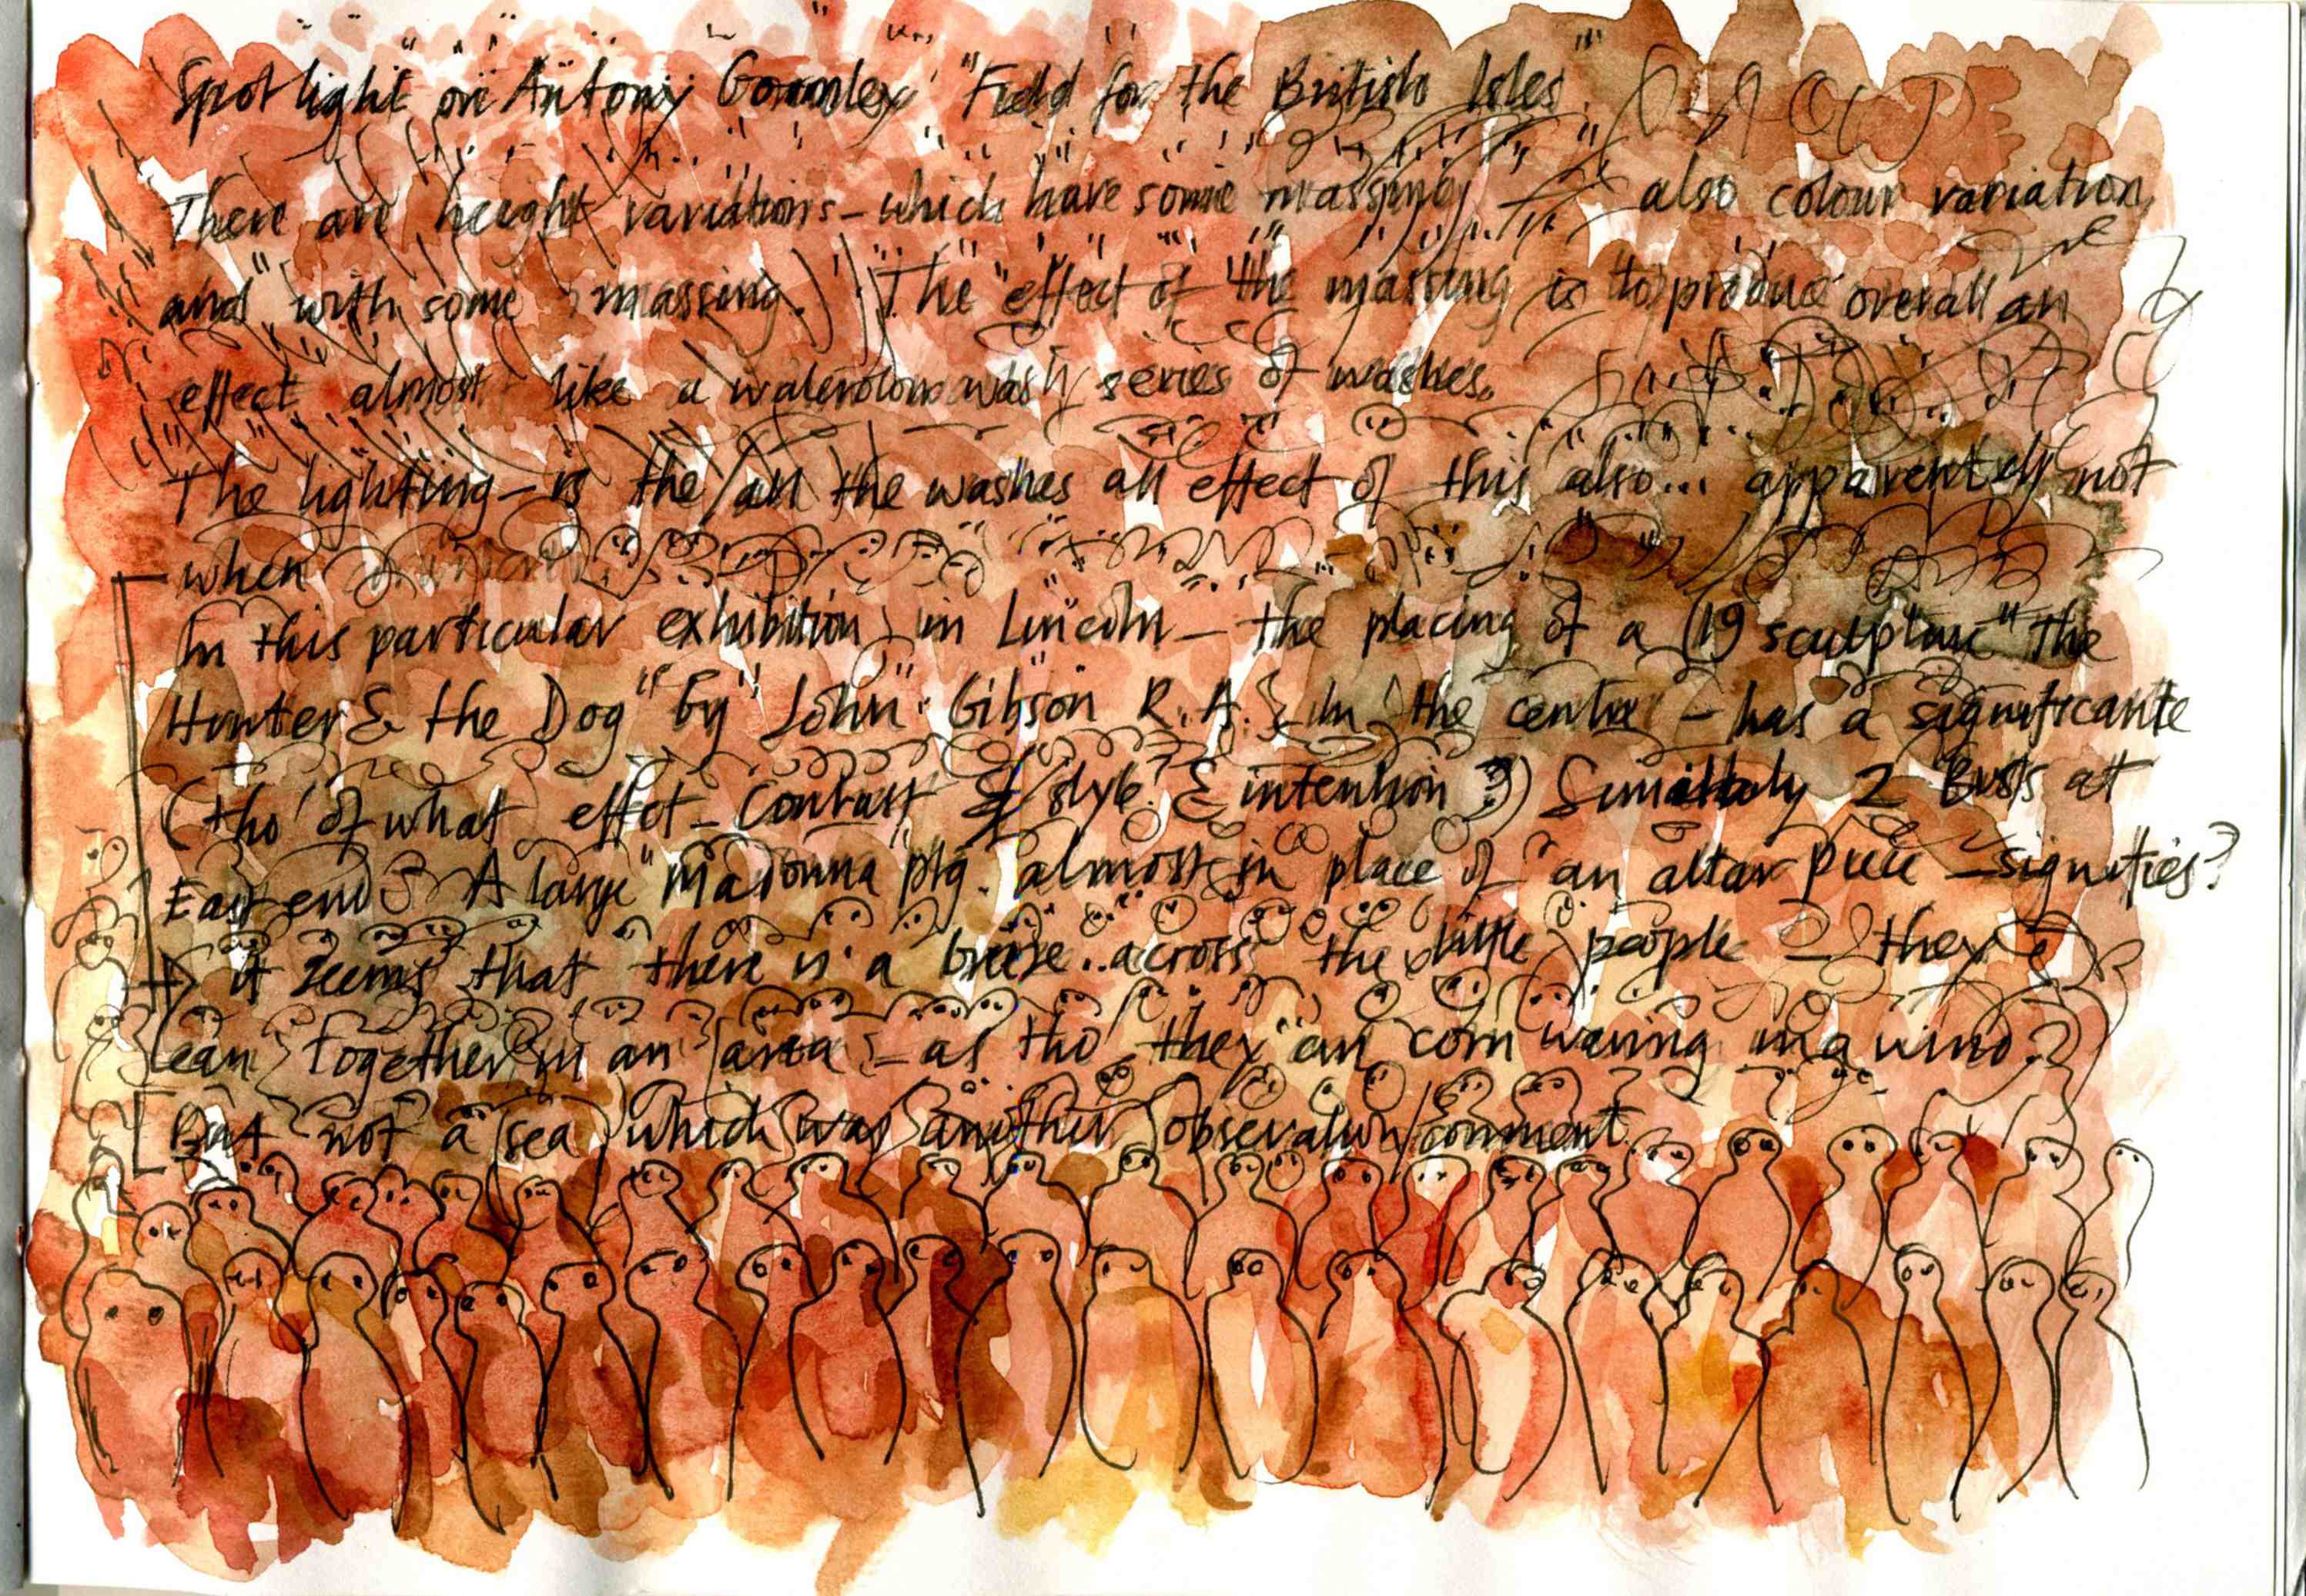 Spotlight on Antony Gormley "Field for the British Isles".
There are height variations - which have some massing, also colour variation,
and with some massing. The effect of the massing is to produce overall an
effect almost like a watercolour wash/series of washes.
The lighting - is the / all the washes an effect of this also... apparently not
when
In this particular exhibition in Lincoln - the placing of a C19 sculpture "The
Hunter & the Dog" by John Gibson R.A. in the centre - has a significante
(tho' of what effect - Contrast of style & intention?) Similarly 2 Busts at
East end & A large Madonna ptg. almost in place of an altar piece - signifies?
it seems that there is a breeze.. across the little people - they
lean together in an area - as tho' they an corn waving in a wind.
But not a sea which was another observation/comment.